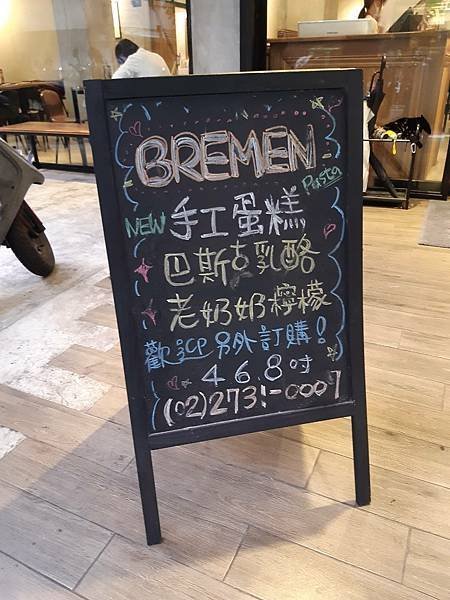 BREMEN
Pasta
NEW 手工蛋糕
巴斯克乳酪
老奶奶檸檬
歡迎 另外訂購！
4 6.8吋
(02)273!-0007